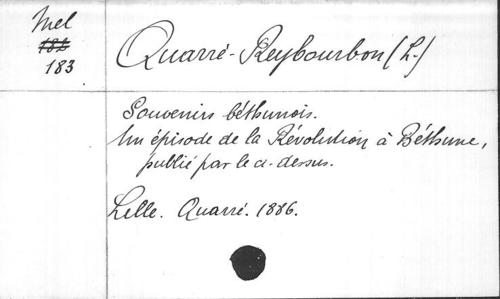 Mel
182
183
Quarré-Reybourbon (L.)
Souvenirs béthunois.
Un épisode de la Révolution à Béthune,
publié par le ci-dessus.
Lille. Quarré. 1886.